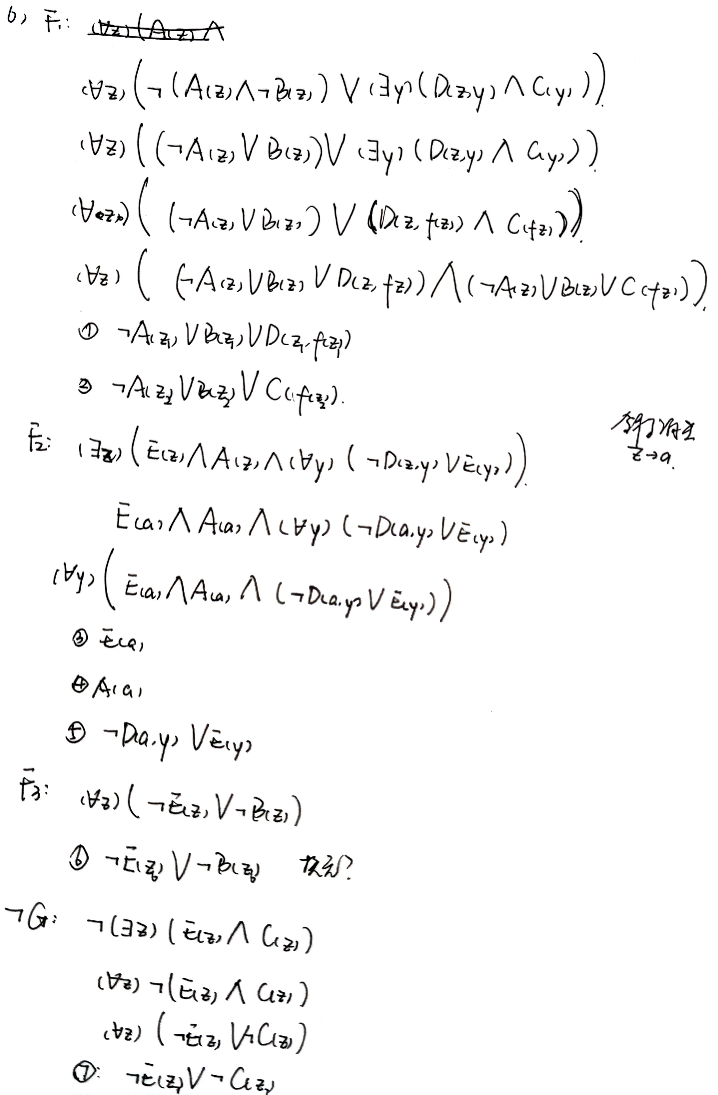 6) F₁: (∀z)(A(z)∧
(∀z)(¬(A(z)∧¬B(z))∨(∃y)(D(z,y)∧C(y)))
(∀z)((¬A(z)∨B(z))∨(∃y)(D(z,y)∧C(y)))
(∀z)((¬A(z)∨B(z))∨(D(z,f(z))∧C(f(z))))
(∀z)((¬A(z)∨B(z)∨D(z,f(z)))∧(¬A(z)∨B(z)∨C(f(z))))
① ¬A(z₁)∨B(z₁)∨D(z₁,f(z₁))
② ¬A(z₂)∨B(z₂)∨C(f(z₂)).
F₂: (∃z)(E(z)∧A(z)∧(∀y)(¬D(z,y)∨E(y)))
z→a.
E(a)∧A(a)∧(∀y)(¬D(a,y)∨E(y))
(∀y)(E(a)∧A(a)∧(¬D(a,y)∨E(y)))
③ E(a)
④ A(a)
⑤ ¬D(a,y)∨E(y)
F₃: (∀z)(¬E(z)∨¬B(z))
⑥ ¬E(z₆)∨¬B(z₆)
¬G: ¬(∃z)(E(z)∧C(z))
(∀z)¬(E(z)∧C(z))
(∀z)(¬E(z)∨¬C(z))
⑦: ¬E(z)∨¬C(z)